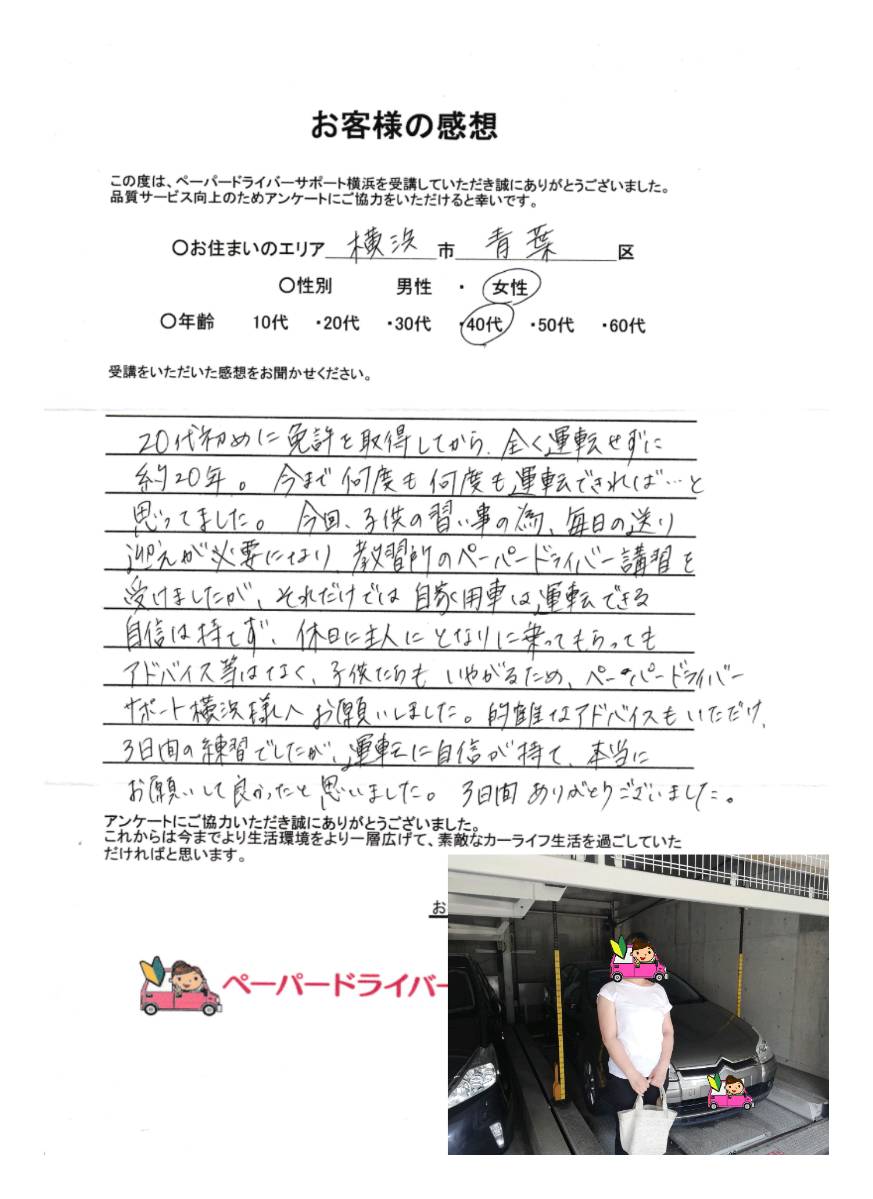 お客様の感想
この度は、ペーパードライバーサポート横浜を受講していただき誠にありがとうございました。
品質サービス向上のためアンケートにご協力をいただけると幸いです。
〇お住まいのエリア 横浜 市 青葉 区
〇性別 男性 ・ 女性
〇年齢 10代 ・20代 ・30代 ・40代 ・50代 ・60代
受講をいただいた感想をお聞かせください。
20代初めに免許を取得してから、全く運転せずに
約20年。今まで何度も何度も運転できれば…と
思ってました。今回、子供の習い事の為、毎日の送り
迎えが必要になり、教習所のペーパードライバー講習を
受けましたが、それだけでは自家用車は運転できる
自信は持てず、休日に主人にとなりに乗ってもらっても
アドバイス等はなく、子供たちもいやがるため、ペーパードライバー
サポート横浜様へお願いしました。的確なアドバイスもいただけ、
3日間の練習でしたが、運転に自信が持て、本当に
お願いして良かったと思いました。3日間ありがとうございました。
アンケートにご協力いただき誠にありがとうございました。
これからは今までより生活環境をより一層広げて、素敵なカーライフ生活を過ごしていた
だければと思います。
お
ペーパードライバー